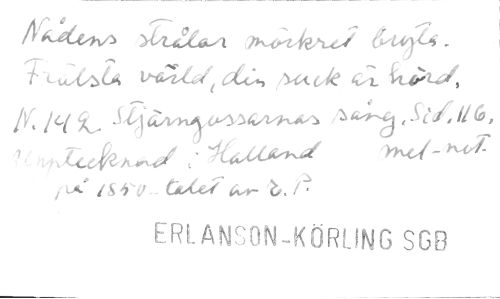 Nådens strålar mörkret bryta.
Frälsta värld, din suck är hörd.
N. 142. Stjärngossarnas sång. Sid. 116.
Upptecknad i Halland mel-not.
på 1850-talet av E. P.
ERLANSON-KÖRLING SGB